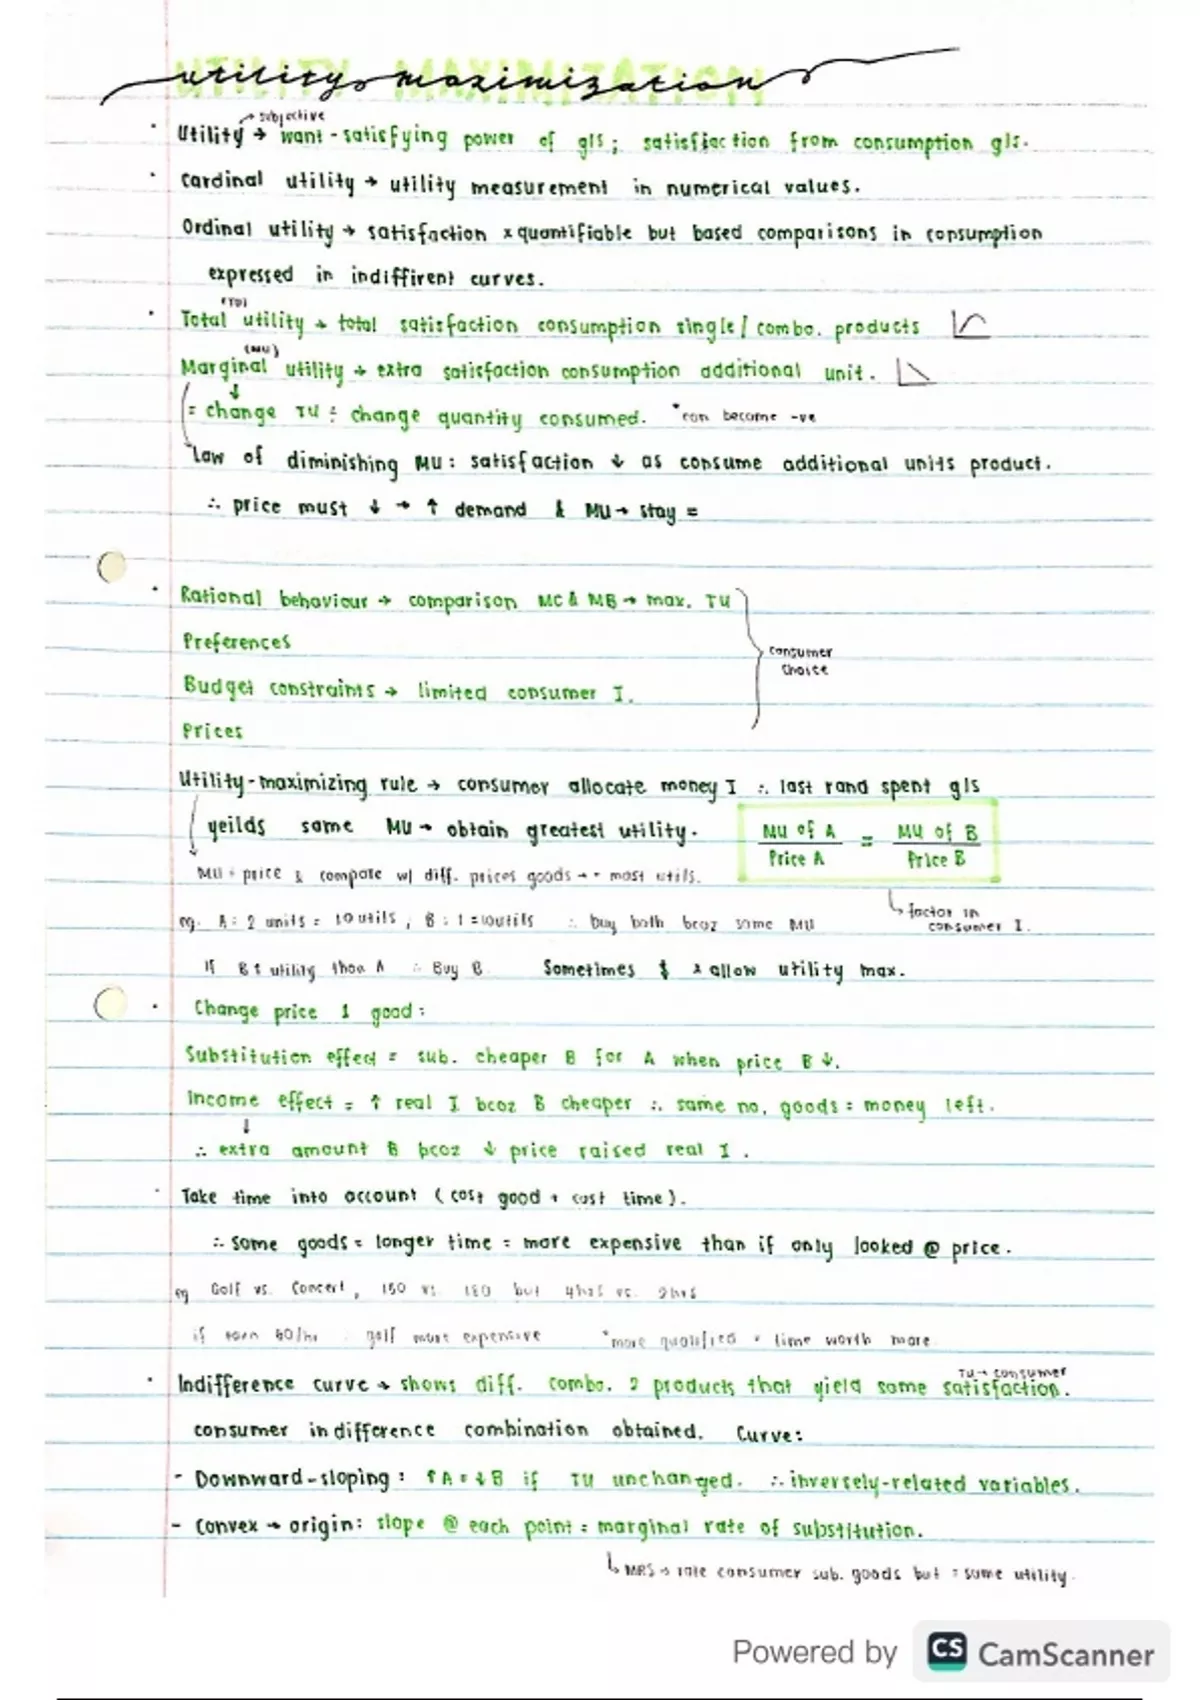 utility maximization
UTILITY MAXIMIZATION
→ subjective
· Utility → want-satisfying power of g/s; satisfaction from consumption g/s.
· Cardinal utility → utility measurement in numerical values.
Ordinal utility → satisfaction x quantifiable but based comparisons in consumption
expressed in indiffirent curves.
(TU)
· Total utility → total satisfaction consumption single/combo. products
(MU)
Marginal utility → extra satisfaction consumption additional unit.
= change TU ÷ change quantity consumed. *can become -ve
Law of diminishing MU: satisfaction ↓ as consume additional units product.
∴ price must ↓ → ↑ demand & MU → stay =
· Rational behaviour → comparison MC & MB → max. TU
Preferences
consumer
choice
Budget constraints → limited consumer I.
Prices
Utility-maximizing rule → consumer allocate money I ∴ last rand spent g/s
yeilds same MU → obtain greatest utility.
MU of A / Price A = MU of B / Price B
MU ÷ price & compare w/ diff. prices goods → most utils.
↳ factor in
consumer I.
eg. A: 2 units = 10 utils, B: 1 = 10utils ∴ buy both bcoz same MU
if B ↑ utility than A ∴ Buy B. Sometimes $ x allow utility max.
· Change price 1 good:
Substitution effect = sub. cheaper B for A when price B ↓.
Income effect = ↑ real I bcoz B cheaper ∴ same no. goods = money left.
↓
∴ extra amount B bcoz ↓ price raised real I.
· Take time into account (cost good + cost time).
∴ some goods = longer time = more expensive than if only looked @ price.
eg Golf vs. Concert, 150 vs 180 but 4hrs vs. 2hrs
if earn 50/hr ∴ golf more expensive *more qualified = time worth more
TU → consumer
· Indifference curve → shows diff. combo. 2 products that yield same satisfaction.
consumer indifference combination obtained. Curve:
- Downward-sloping: ↑A = ↓B if TU unchanged. ∴ inversely-related variables.
- Convex → origin: slope @ each point = marginal rate of substitution.
↳ MRS → rate consumer sub. goods but = same utility.
Powered by CS CamScanner